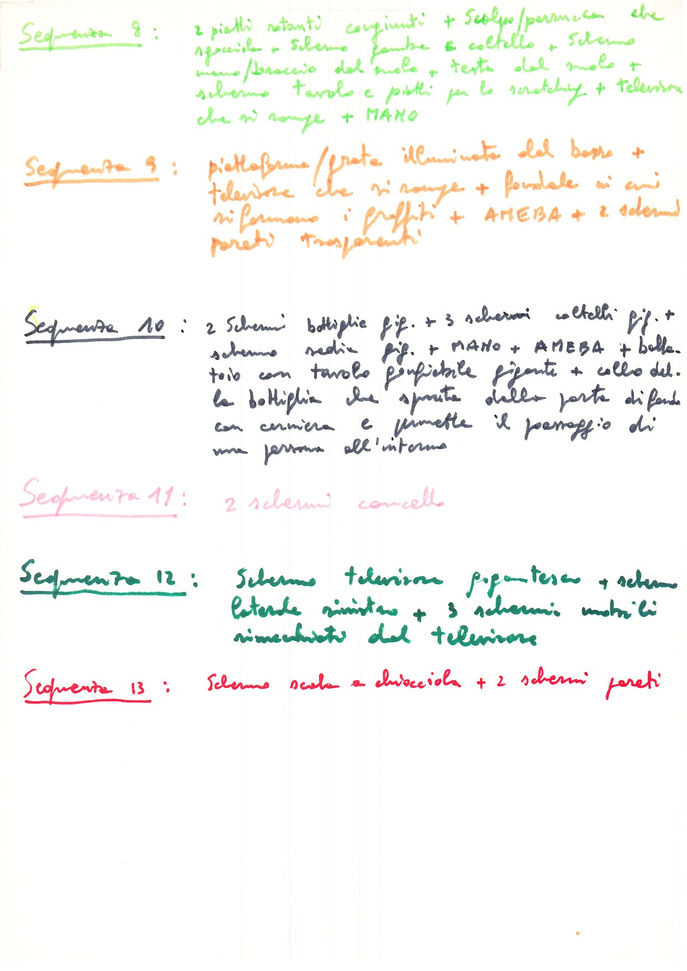 Sequenza 8 : 2 piatti rotanti congiunti + Scalpo/parrucca che
sgocciola + Schermo gamba e coltello + Schermo
mano/braccio dal suolo + testa dal suolo +
schermo tavolo e piatti per lo scratching + televisore
che si range + MANO
Sequenza 9 : piattaforma/grata illuminata dal basso +
televisore che si range + fondale su cui
si formano i graffiti + AMEBA + 2 schermi
pareti trasparenti
Sequenza 10 : 2 Schermi bottiglie gig. + 3 schermi coltelli gig. +
schermo sedia gig. + MANO + AMEBA + balla-
toio con tavolo gonfiabile gigante + collo del-
la bottiglia che spunta dalla porta di fondo
con cerniera e permette il passaggio di
una persona all'interno
Sequenza 11 : 2 schermi cancello
Sequenza 12 : Schermo televisore gigantesco + schermo
laterale sinistro + 3 schermi mobili
risucchiati dal televisore
Sequenza 13 : Schermo scala a chiocciola + 2 schermi pareti